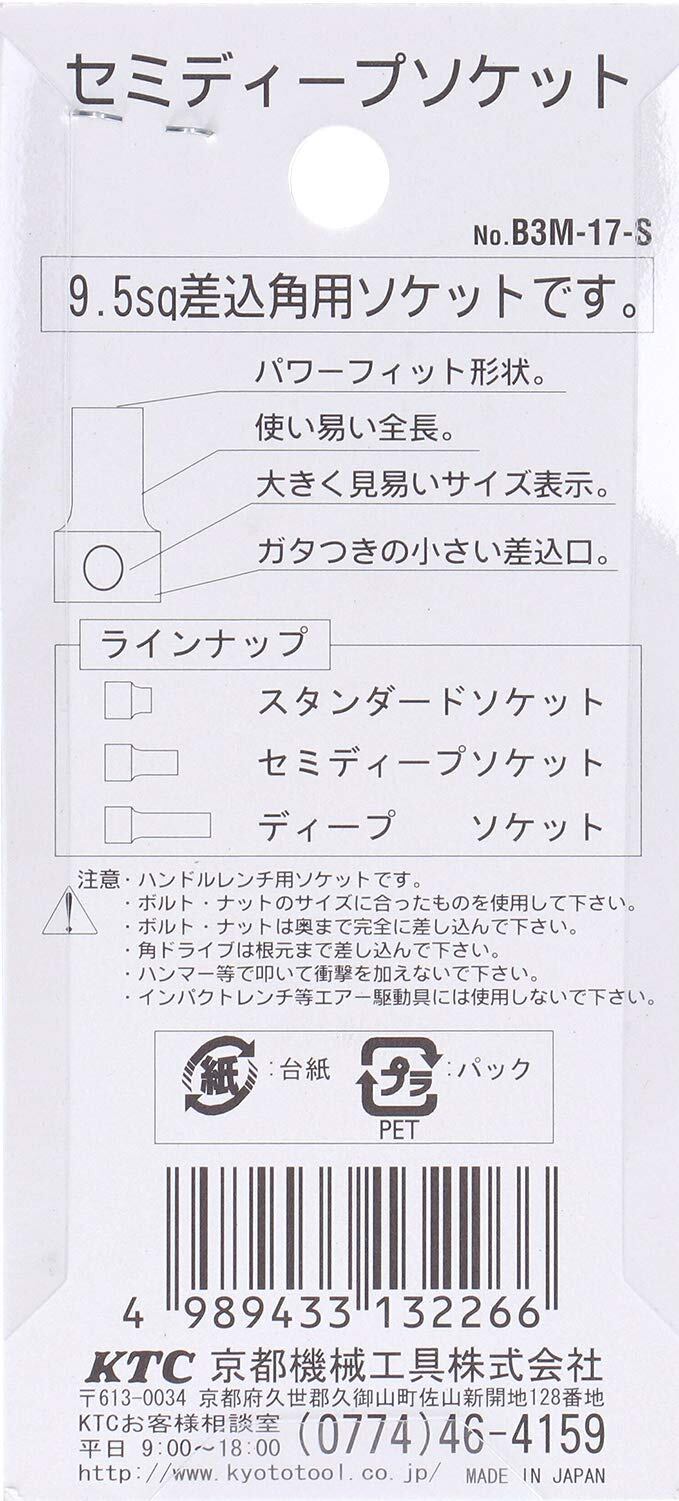 セミディープソケット
No.B3M-17-S
9.5sq差込角用ソケットです。
パワーフィット形状。
使い易い全長。
大きく見易いサイズ表示。
ガタつきの小さい差込口。
ラインナップ
スタンダードソケット
セミディープソケット
ディープ ソケット
注意・ハンドルレンチ用ソケットです。
・ボルト・ナットのサイズに合ったものを使用して下さい。
・ボルト・ナットは奥まで完全に差し込んで下さい。
・角ドライブは根元まで差し込んで下さい。
・ハンマー等で叩いて衝撃を加えないで下さい。
・インパクトレンチ等エアー駆動具には使用しないで下さい。
紙:台紙 プラ:パック
PET
4 989433 132266
KTC 京都機械工具株式会社
〒613-0034 京都府久世郡久御山町佐山新開地128番地
KTCお客様相談室
平日 9:00~18:00 (0774)46-4159
http://www.kyototool.co.jp/ MADE IN JAPAN